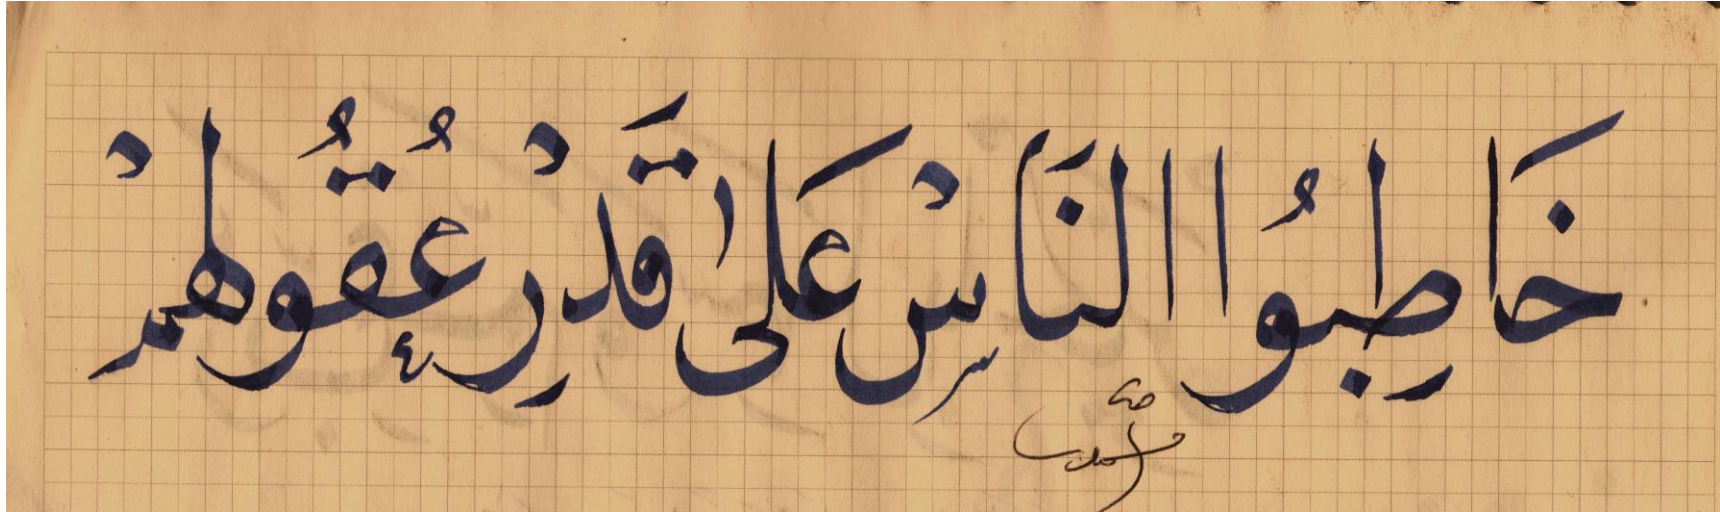 خَاطِبُوا النَاسْ عَلى قَدْرِ عُقُولهمْ